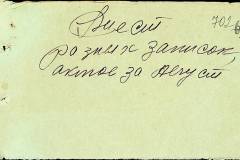 702
Реест
разных записок,
актов за Август